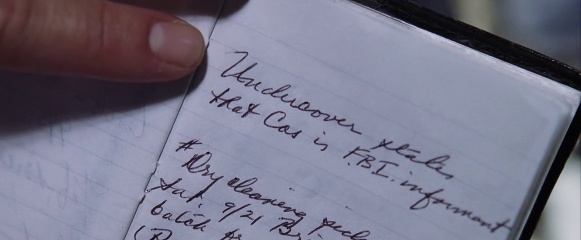 Undercover states
that Cas is F.B.I. informant
# Dry cleaning pick
Sat 9/21 Br
batch